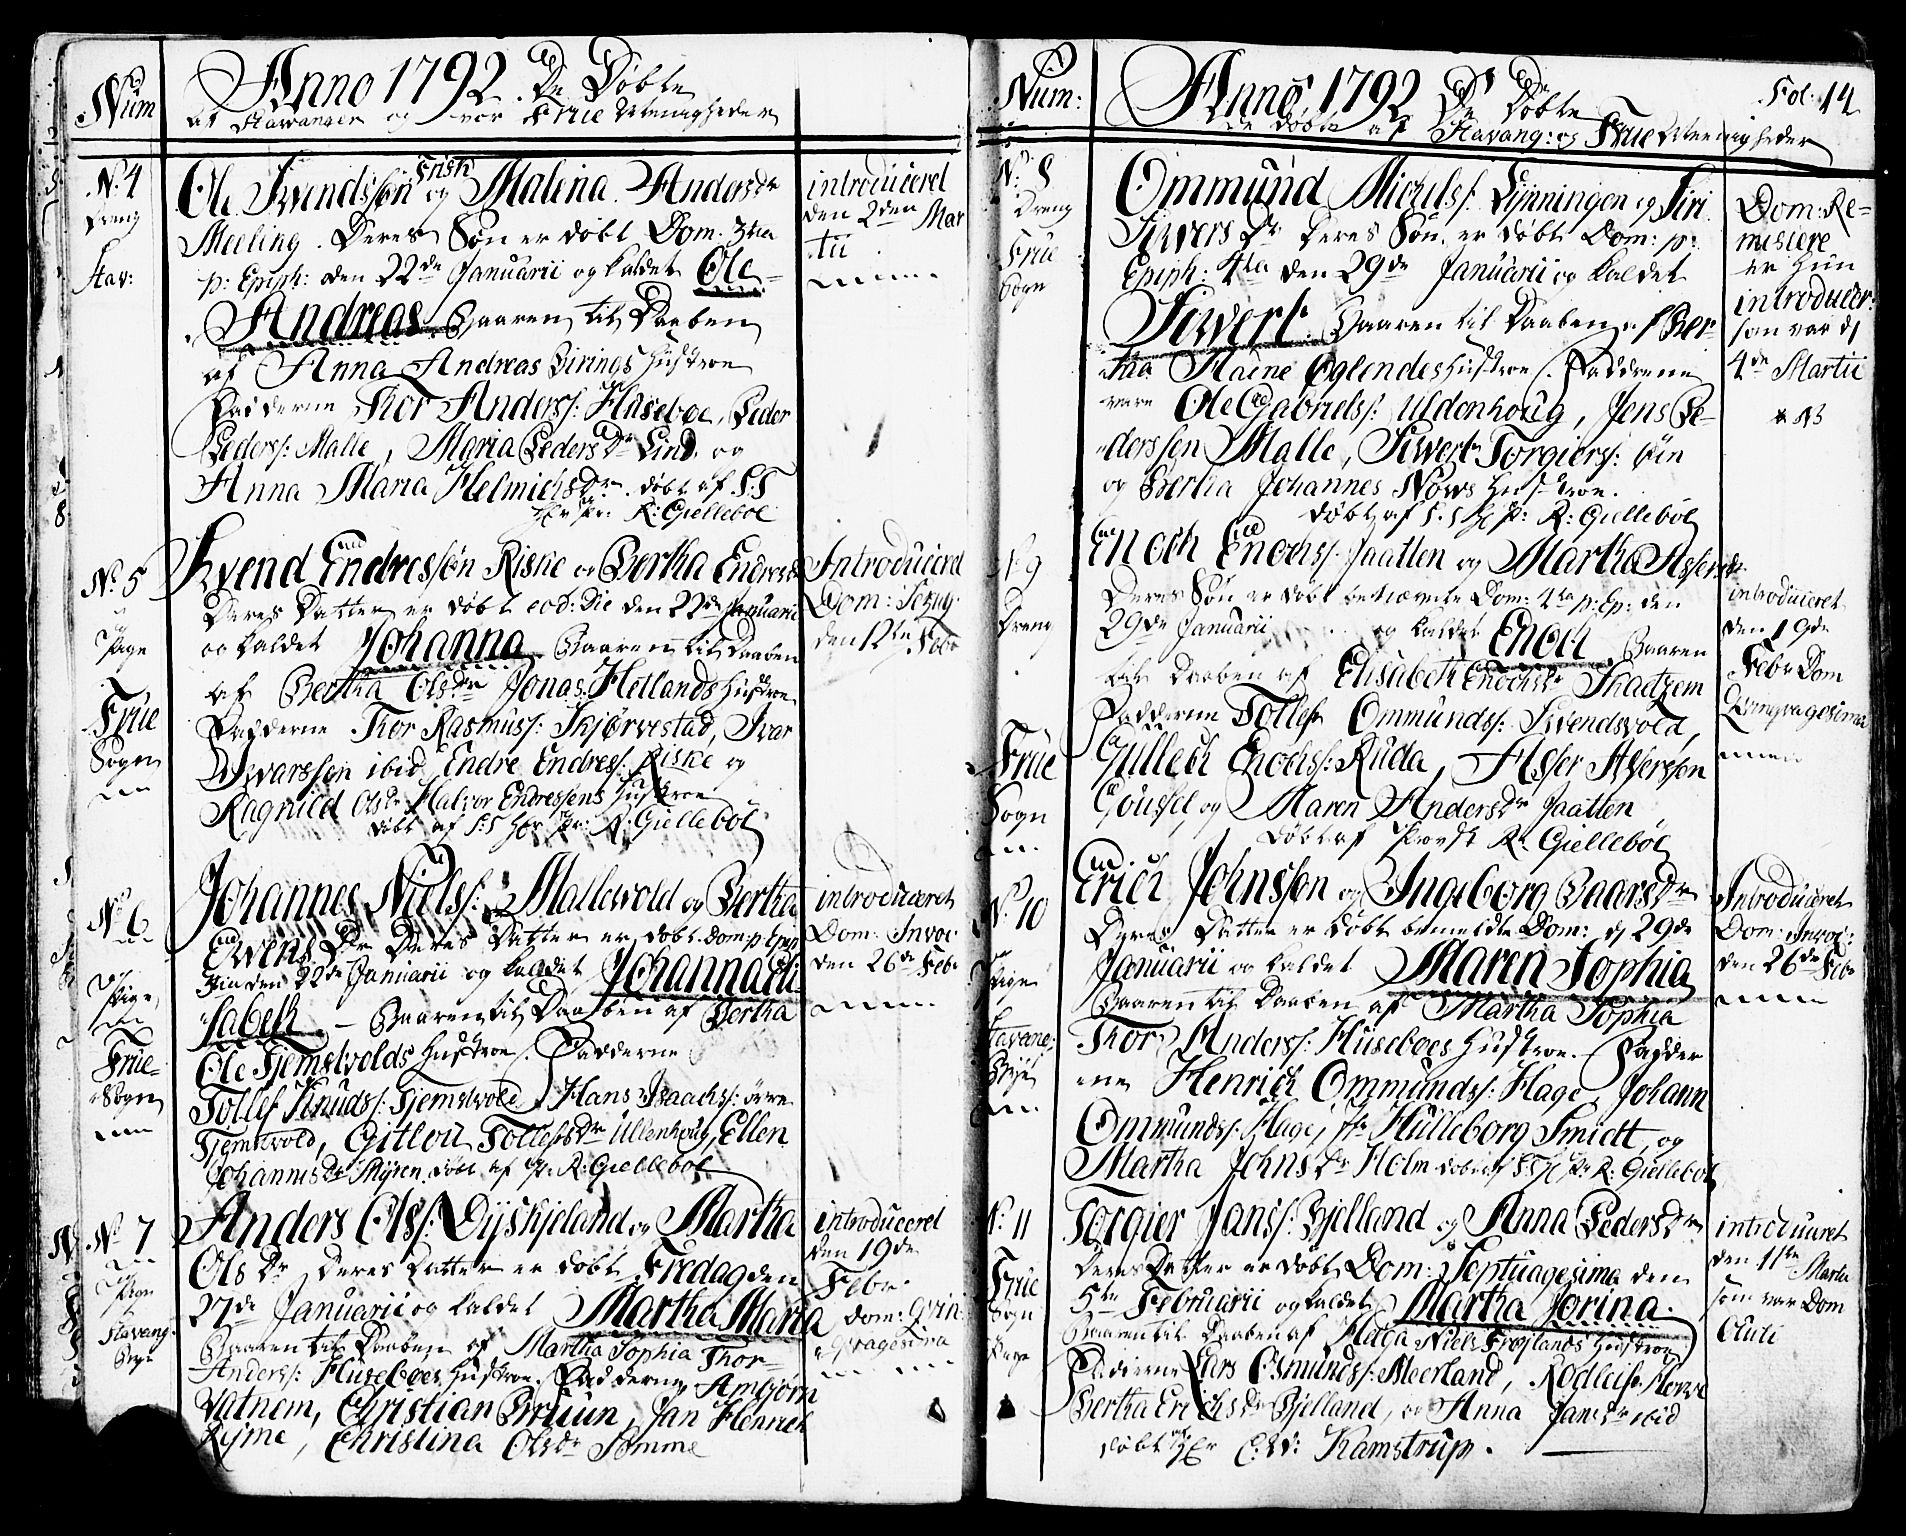 Num
Anno 1792. De Døbte
af Stavanger og vor Frue Menigheder
N. 4
Dreng
Stav:
Ole Svendssøn Frish og Malena Andersdr
Meeling. Deres Søn er døbt Dom. 3tia
p: Epiph: den 22de Januarii og kaldet Ole
Andreas. Baaren til Daaben
af Anna Andreas Birings Hustroe
Fadderne Thor Anderss: Husebøe, Peder
Peders: Malle, Maria Pedersdr Lind, og
Anna Maria Helmichsdr. døbt af S:S
Hr Pr: R: Giellebøl
introduceret
den 2den Mar
tii
N. 5
Pige
Frue
Sogn
Svend Endressøn Riske og Bertha Endresdr
Deres Datter er døbt eod: Die den 22de Januarii
og kaldet Johanna Baaren til Daaben
af Bertha Olsdr Jonas Hetlands Hustroe
Fadderne Thor Rasmuss: Skjørvestad, Ivar
Iwarssøn ibid, Endre Endress: Riske og
Ragnild Olsdr Halvor Endressens Hustroe
døbt af S:S Hr Pr: R: Giellebøl
Introduceret
Dom: Sexag:
den 12te Febr
No 6
Pige
Frue
Sogn
Johannes Niels: Mallewold og Bertha
Ewensdr Deres Datter er døbt Dom: p Epip
3tia den 22de Januarii og kaldet Johanna Eli
sabeth. – Baaren til Daaben af Bertha
Ole Tjemsvolds Hustroe. Fadderne
Tollef Knuds: Tjemsvold, Hans Isaachs: øvre
Tjemsvold, Gitlou Tollefsdr Ullenhoug, Ellen
Johannisdr Myren. døbt af Pr: R: Giellebøl
introduceret
Dom: Invoc:
den 26de Febr
No 7
Pige
Stavang:
Bye
Anders Olss: Dyskjeland og Martha
Olsdr Deres Datter er døbt Fredag den
27de Januarii og kaldet Martha Maria
Baaren til Daaben af Martha Sophia Thor
Anders: Husebøes Hustroe. Fadderne Ambjørn
Vatnem, Christian Bruun, Jan Henrich
Ryme, Christina Olsdr Somme
introduceret
den 19de
Febr.
Dom: Qvin
qvagesima
Num:
Anno 1792 De Døbte
De døbte af Stavang: og Frue Menigheder
Fol. 14
N. 8
Dreng
Frue
Sogn
Ommund Michels: Lynningen og Siri
Siwersdr Deres Søn er døbt Dom: p:
Epiph: 4ta den 29de Januarii og kaldet
Siwert. Baaren til Daaben af Ber
tha Oglendes Hustroe. Fadderne
vare Ole Gabriels: Uldenhoug, Jens Pe
derssen Malle, Siwert Torgiers: siin
og Bertha Johannes Hustroe.
døbt af S:S Hr Pr: R: Giellebøl
Dom: Re
misiere
er hun
introducer:
som var d
4de Martii
N. 9
Dreng
Frue
Sogn
Enoch Enochs: Jaatten og Martha Assersdr
Deres Søn er døbt bemeldte Dom: 4ta p: Ep: den
29de Januarii og kaldet Enoch Baaren
til Daaben af Elisabeth Enochsdr
Fadderne Tollef Ommunds: Svendsvold,
Gulleich Enochs: Ruda, Asser Asserssøn
Gousel, og Maren Andersdr Jaatten
døbt af Provst R: Giellebøl
introduceret
den 19de
Febr Dom
Qvinqvagesima
N. 10
Pige
Stavang:
Bye
Erich Johnssøn og Ingeborg Baarsdr
Deres Datter er døbt bemeldte Dom: d 29de
Januarii og kaldet Maren Sophia
Baaren til Daaben af Martha Sophia
Thor Anders: Husebøes Hustroe. Fadder
ne Henrich Ommunds: Hage, Johann
Ommunds: Hage, Hulleborg Smidt, og
Martha Johnsdr Holm døbt af S:S Hr Pr R: Giellebøl
Introduceret
Dom: Invoc:
den 26de Febr
N. 11
Frue
Sogn
Pige
Torgier Janss: Bjelland og Anna Pedersdr
Deres Datter er døbt Dom: Septuagesima den
5te Februarii og kaldet Martha Jorina.
Baaren til Daaben af Helga Niels Frøjlands Hustroe.
Fadderne Lars Osmunds: Meerland,
Bertha Erichsdr Bjelland, og Anna Jansdr ibid
døbt af Hr C: W: Kamstrup.
introduceret
den 11te Martii
som var Dom
Oculi